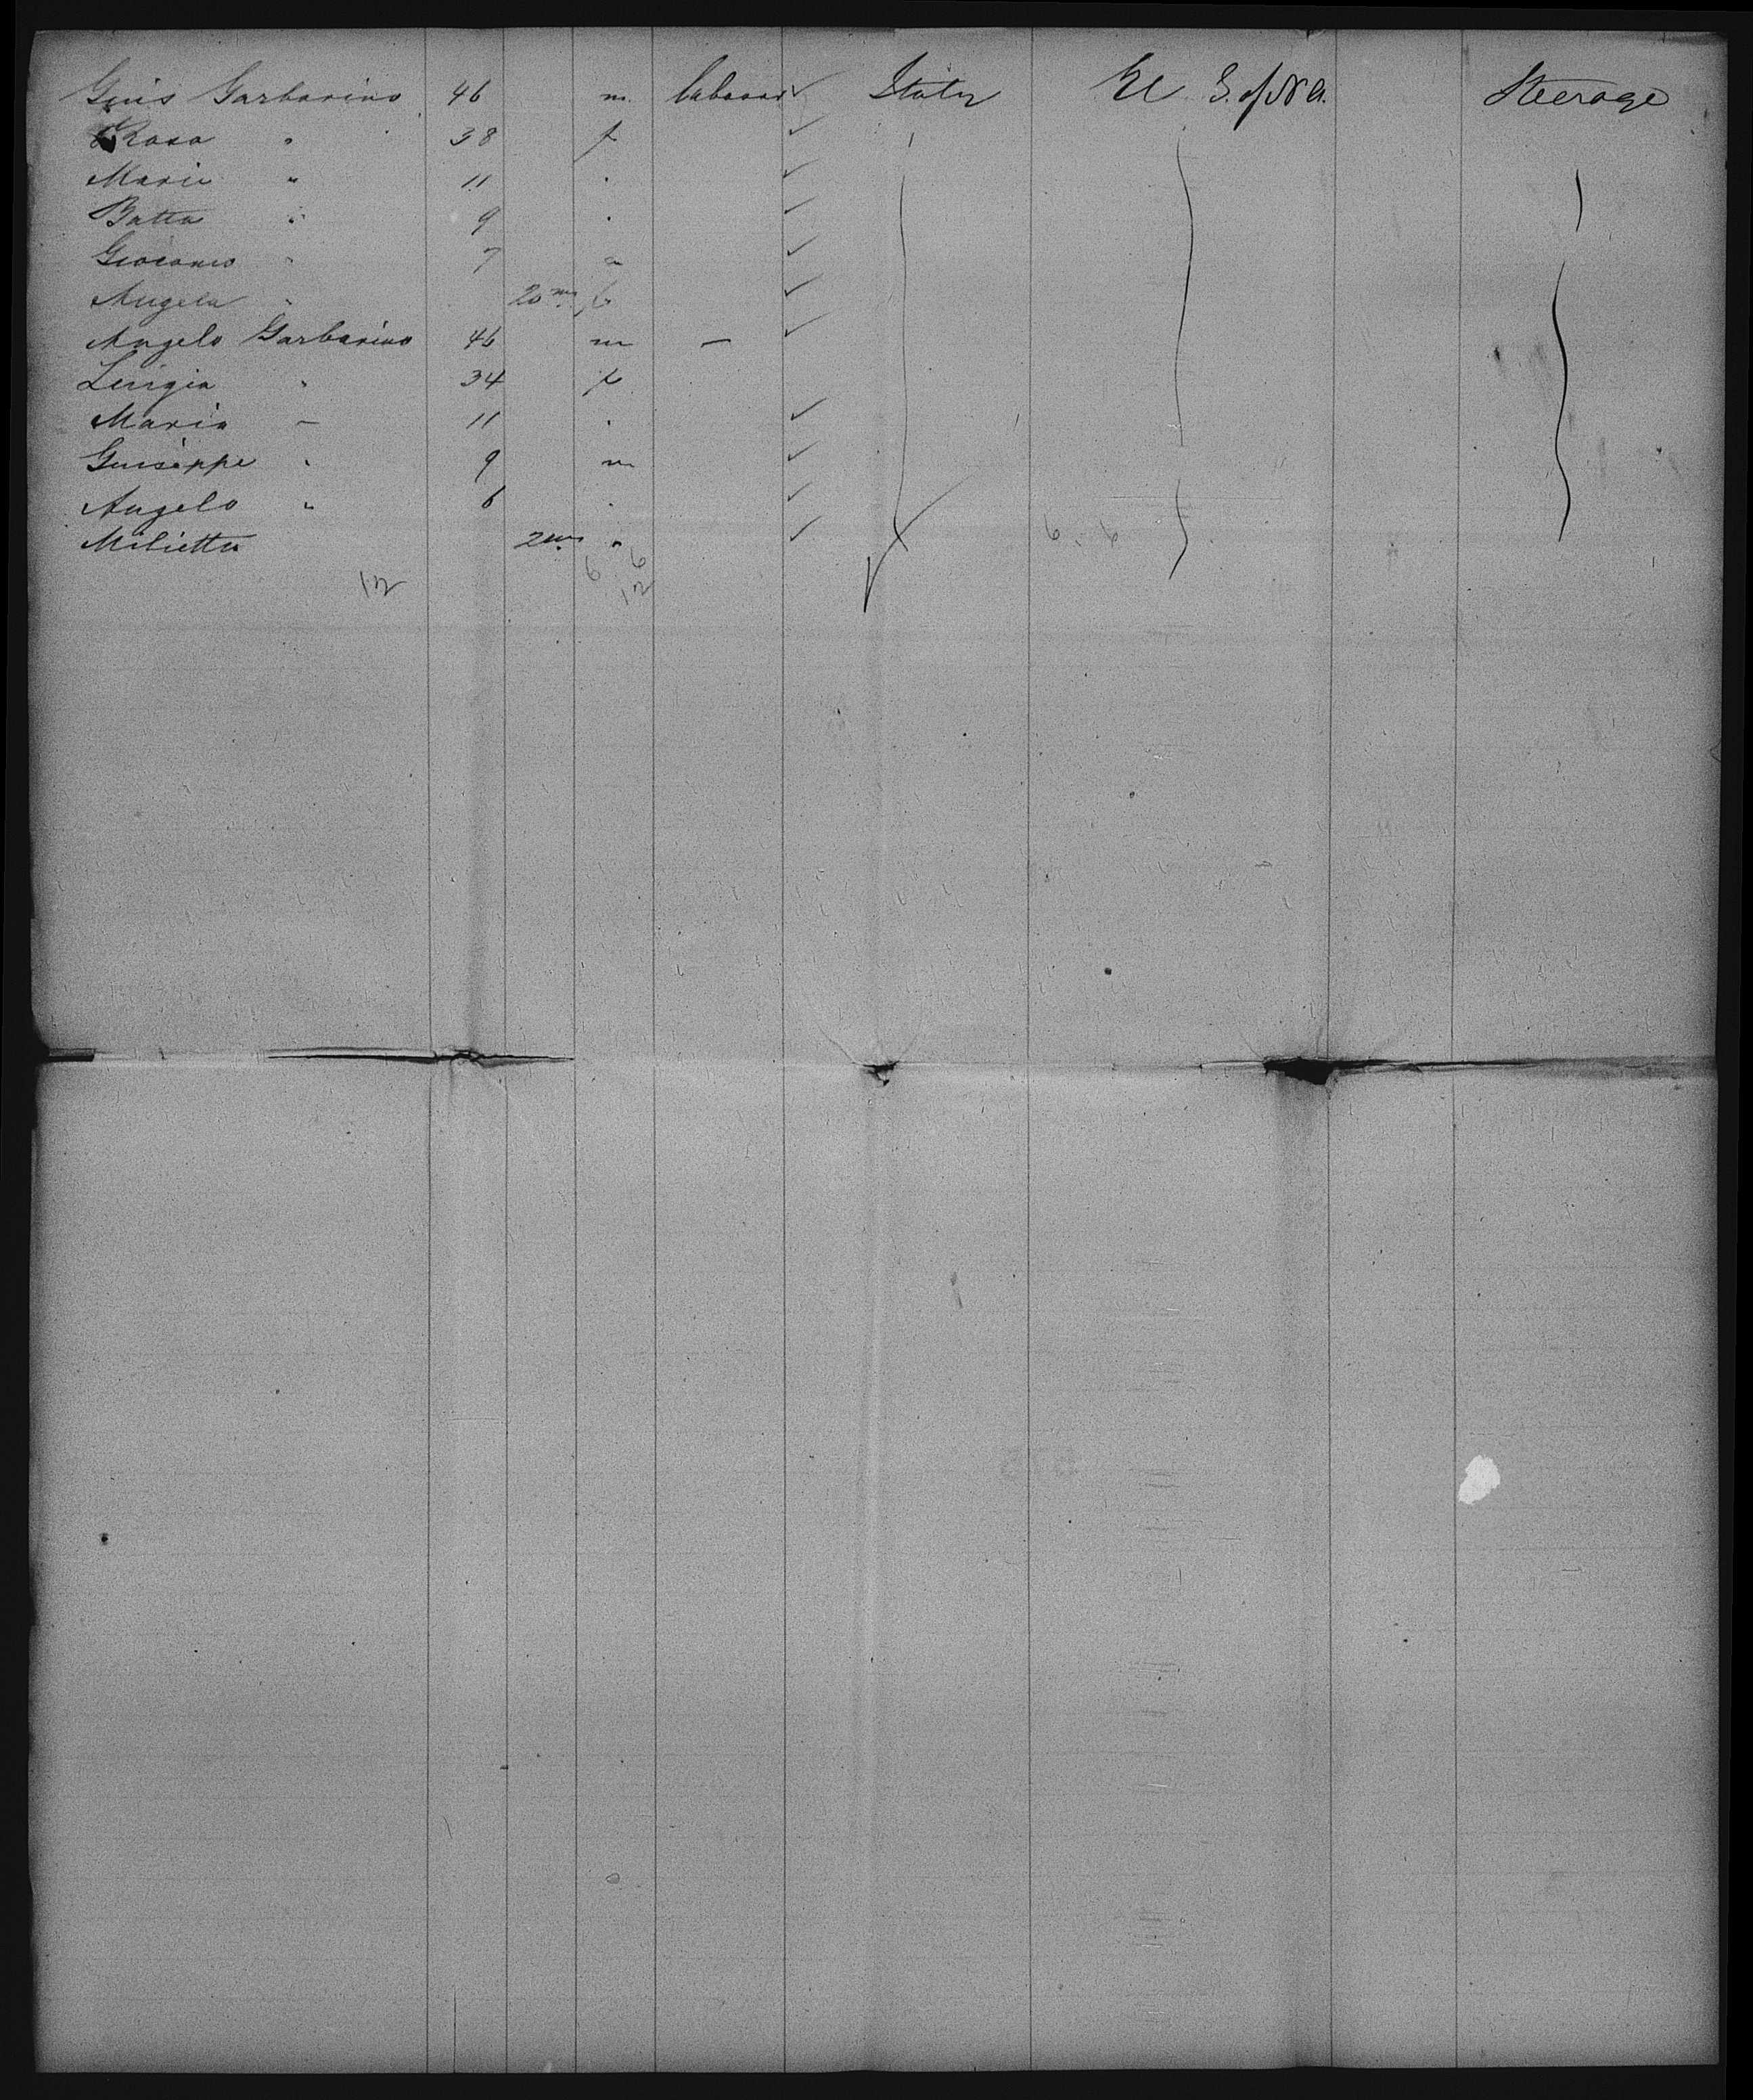 Guis Garbarino 46 m. Labourer ✓ Italy U S. of N A. Steerage
Rosa " 38 f ✓
Maria " 11 " ✓
Batta " 9 " ✓
Giacomo " 7 m ✓
Angela " 20 ms f ✓
Angelo Garbarino 46 m — ✓
Luigia " 34 f
Maria — 11 " ✓
Guiseppe " 9 m ✓
Angelo " 6 " ✓
Milietta 2 ms " ✓
6 6
12 12